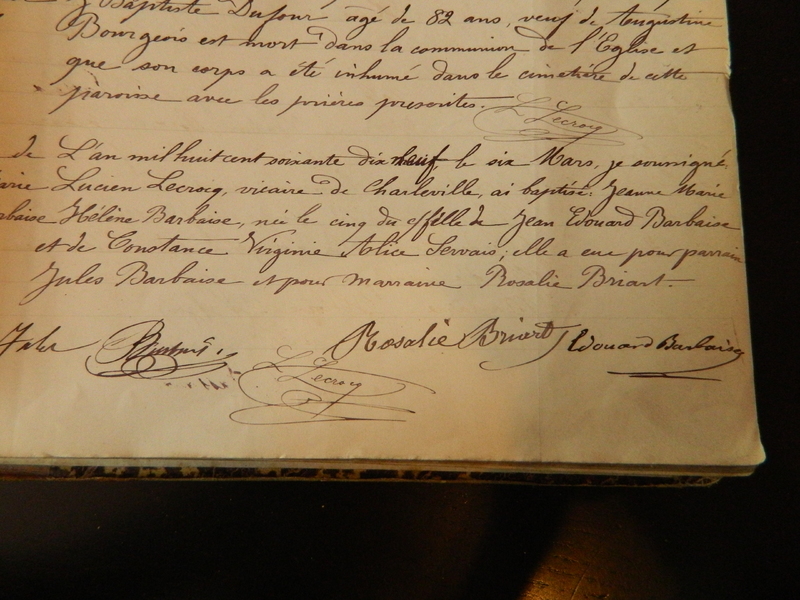 Baptiste Dufour âgé de 82 ans, veuf de Augustine
Bourgeois est mort dans la communion de l'Eglise et
que son corps a été inhumé dans le cimetière de cette
paroisse avec les prières prescrites.
L Lecrocq
de L'an mil huit cent soixante dix neuf, le six Mars, je soussigné
arie Lucien Lecrocq, vicaire de Charleville, ai baptisé: Jeanne Marie
rbaise Hélène Barbaise, née le cinq du et fille de Jean Edouard Barbaise
et de Constance Virginie Alice Servais; elle a eue pour parrain
Jules Barbaise et pour marraine Rosalie Briart.
Jules Rosalie Briart Edouard Barbaise
L Lecrocq